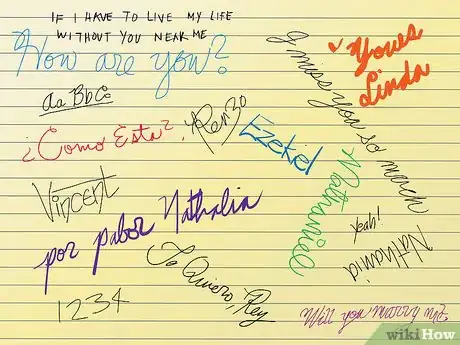 IF I HAVE TO LIVE MY LIFE
WITHOUT YOU NEAR ME
How are you?
Yours
Linda
I miss you so much
aa Bb Cc
¿Como Esta?,
Renzo
Ezekiel
Nathaniel
Vincent
Yeah!
por pabor Nathalia
Nathania
Ta Quiero, Rey
1234
Will you marry me?
wikiHow